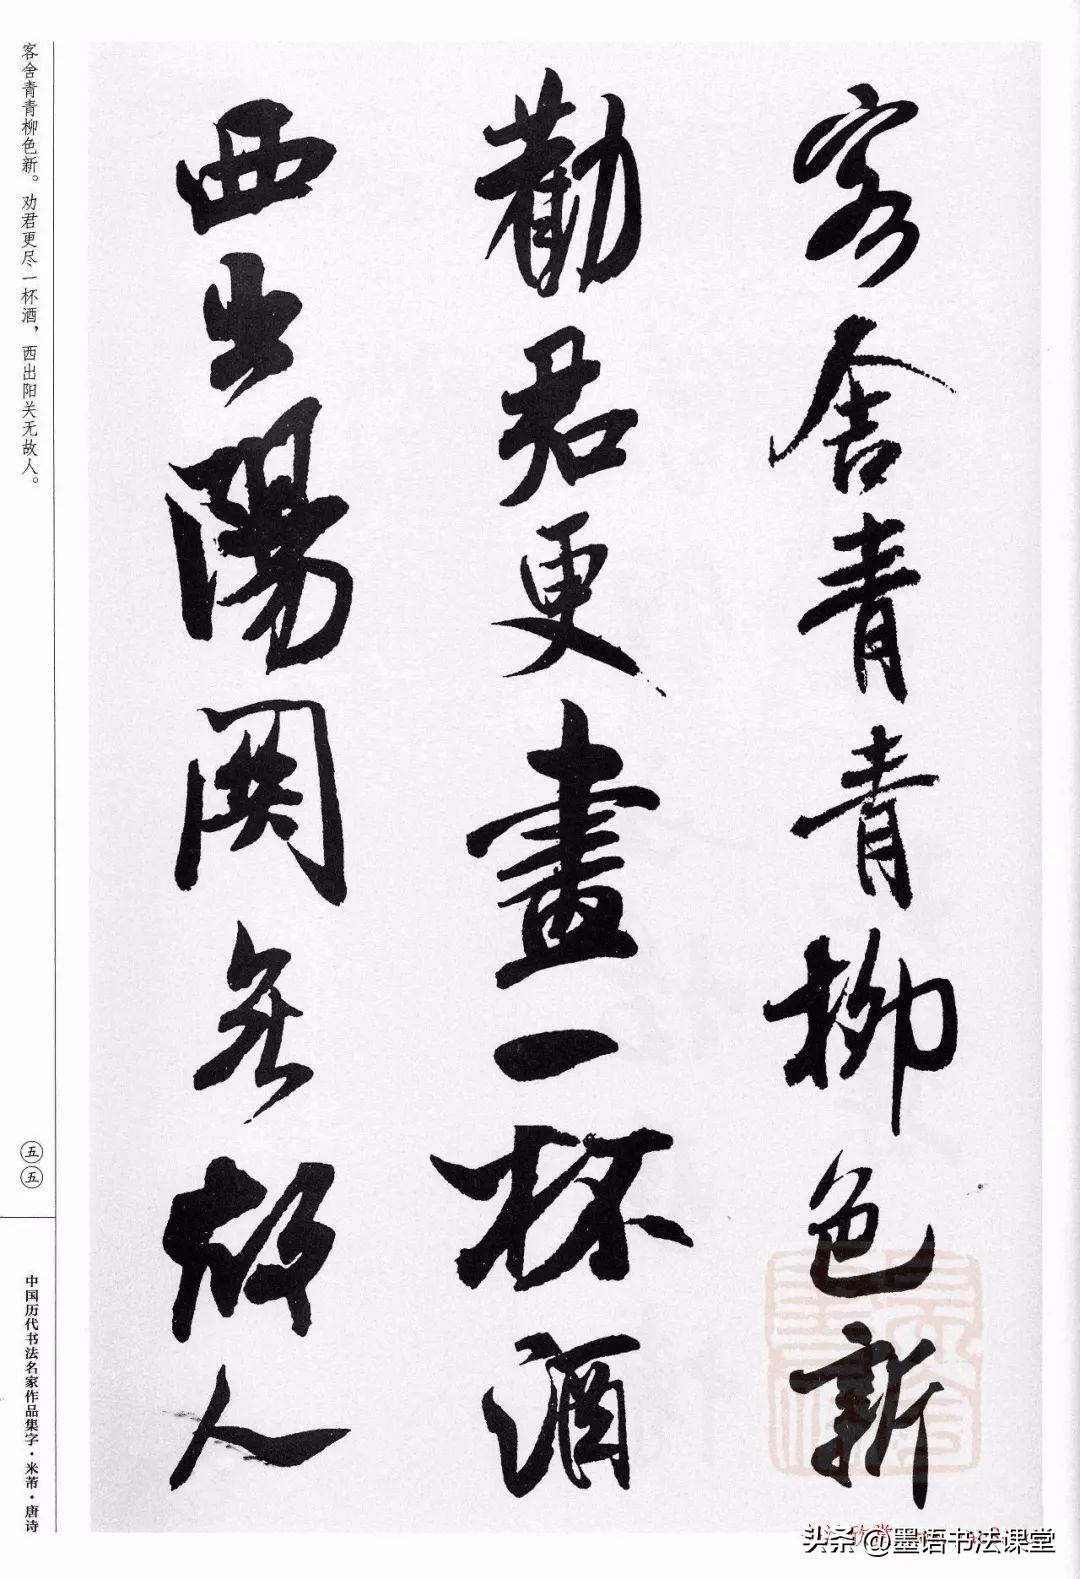 客舍青青柳色新
勸君更畫一杯酒
西出陽關無故人
客舍青青柳色新。劝君更尽一杯酒，西出阳关无故人。
五五
中国历代书法名家作品集字·米芾·唐诗
头条 @墨语书法课堂